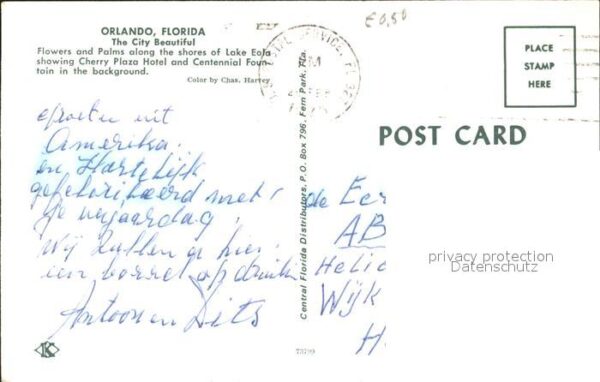 ORLANDO, FLORIDA
The City Beautiful
Flowers and Palms along the shores of Lake Eola
showing Cherry Plaza Hotel and Centennial Foun-
tain in the background.
Color by Chas. Harvey
€0,50
PLACE
STAMP
HERE
POST CARD
Groeten uit
Amerika.
en Hartelijk
gefeliciteerd met
je verjaardag,
Wij zullen er hier
een borrel op drinken
Antoon en Diets
Central Florida Distributors, P. O. Box 796, Fern Park, Fla.
73799
de Eer
AB
Helic
Wijk
H
privacy protection
Datenschutz
K